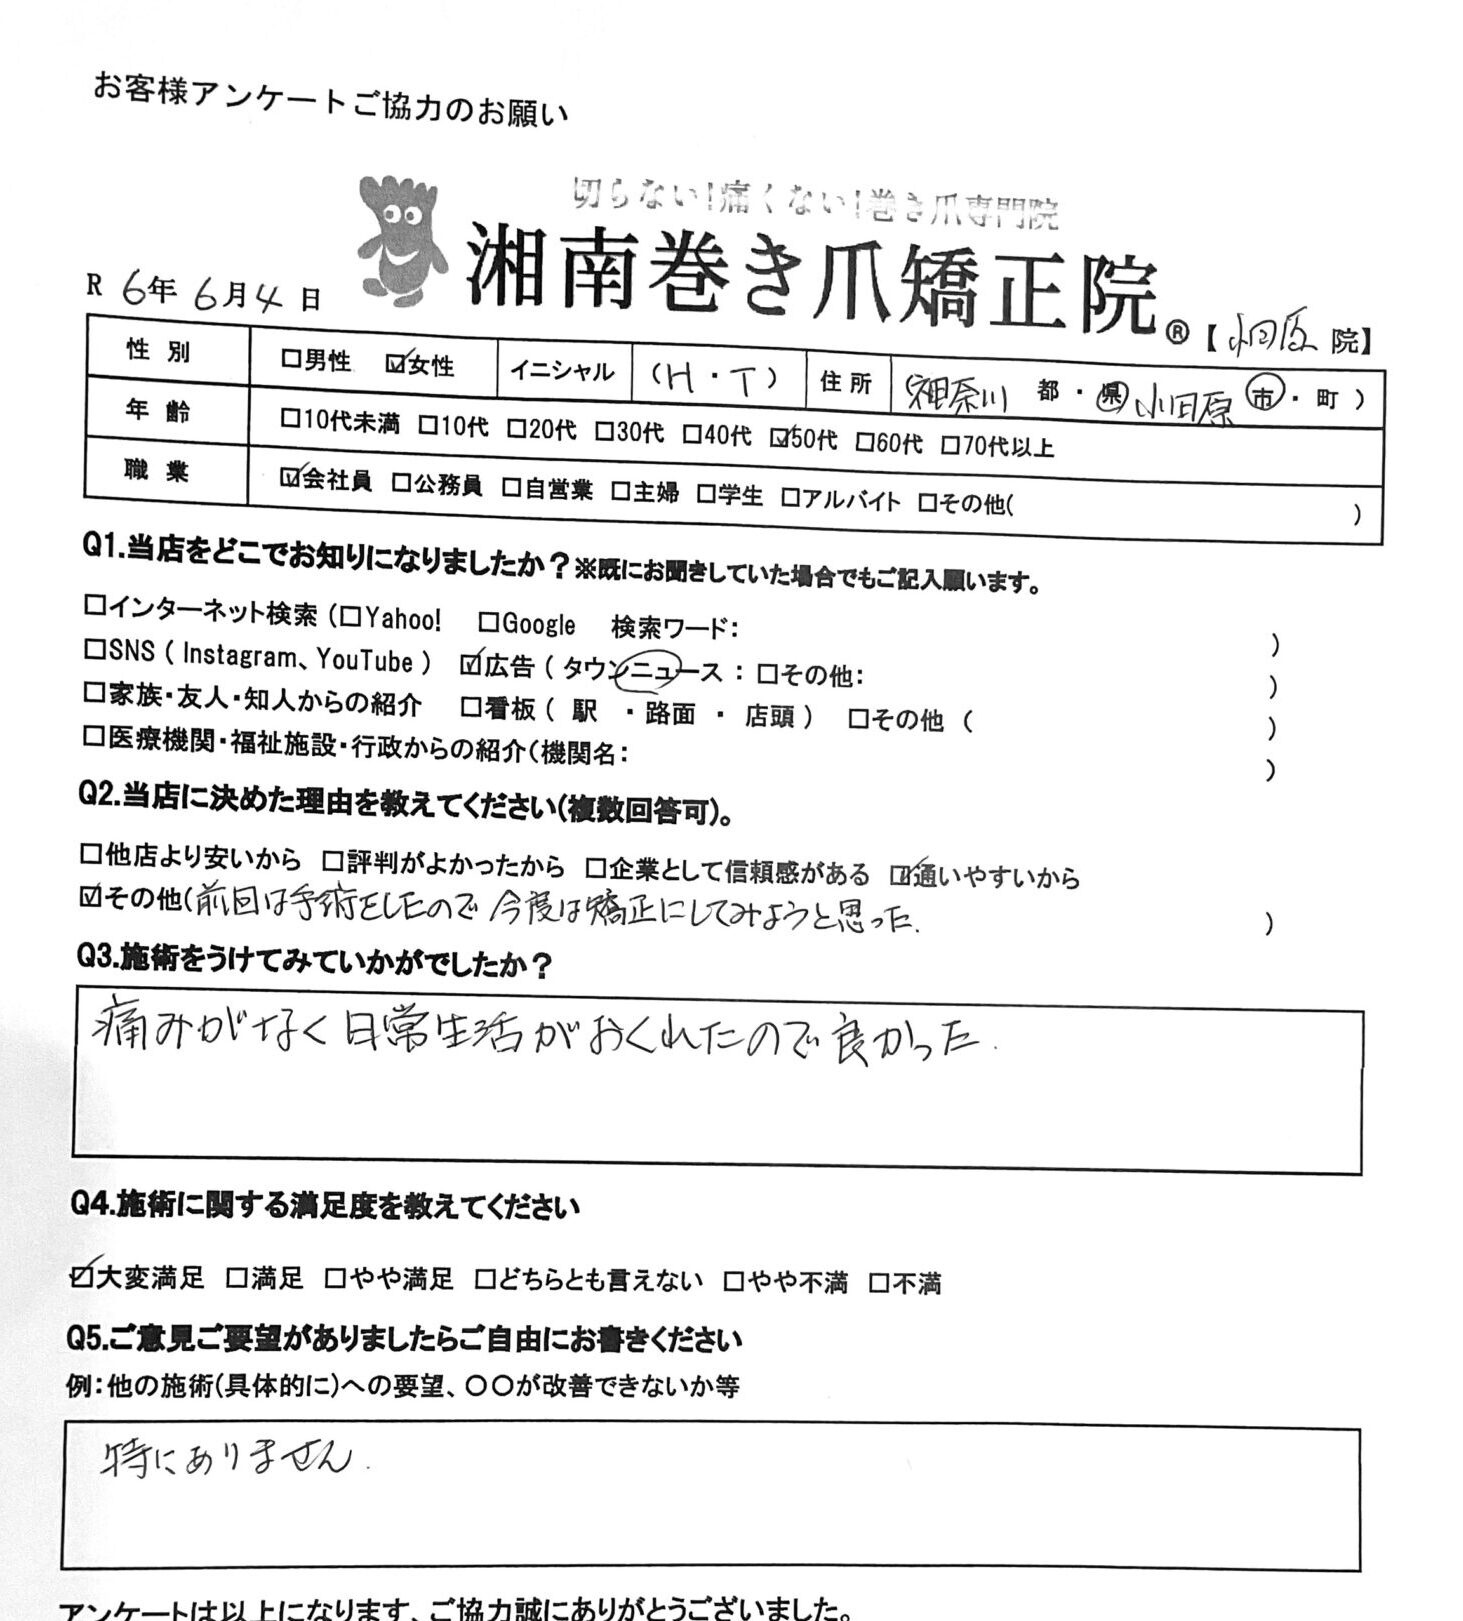 お客様アンケートご協力のお願い
切らない!痛くない!巻き爪専門院
湘南巻き爪矯正院® 【小田原院】
R 6年 6月 4日
性別 □男性 ☑女性 イニシャル (H・T) 住所 (神奈川 都・県 小田原 市・町 )
年齢 □10代未満 □10代 □20代 □30代 □40代 ☑50代 □60代 □70代以上
職業 ☑会社員 □公務員 □自営業 □主婦 □学生 □アルバイト □その他( )
Q1.当店をどこでお知りになりましたか?※既にお聞きしていた場合でもご記入願います。
□インターネット検索 (□Yahoo! □Google 検索ワード: )
□SNS ( Instagram、YouTube ) ☑広告 ( タウンニュース : □その他: )
□家族・友人・知人からの紹介 □看板 ( 駅 ・路面 ・ 店頭 ) □その他 ( )
□医療機関・福祉施設・行政からの紹介(機関名: )
Q2.当店に決めた理由を教えてください(複数回答可)。
□他店より安いから □評判がよかったから □企業として信頼感がある ☑通いやすいから
☑その他(前回は手術をしたので 今度は矯正にしてみようと思った. )
Q3.施術をうけてみていかがでしたか?
痛みがなく日常生活がおくれたので良かった.
Q4.施術に関する満足度を教えてください
☑大変満足 □満足 □やや満足 □どちらとも言えない □やや不満 □不満
Q5.ご意見ご要望がありましたらご自由にお書きください
例:他の施術(具体的に)への要望、〇〇が改善できないか等
特にありません.
アンケートは以上になります、ご協力誠にありがとうございました。